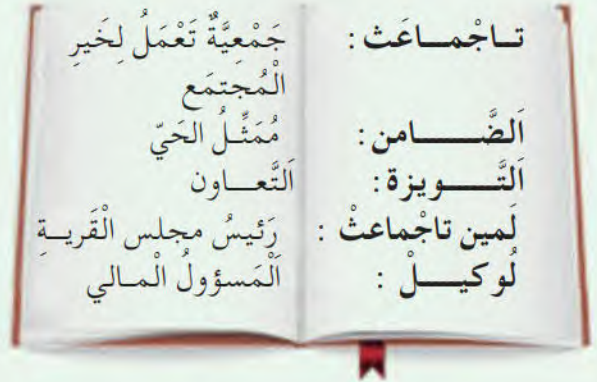 تـاجْمـاعَث : جَمْعِيَّةٌ تَعْمَلُ لِخَيرِ
الْمُجتمَع
اَلضَّـامن : مُمَثِّلُ الحَيّ
اَلتَّـويزة : اَلتَّعـاون
لَمين تاجْماعثْ : رَئيسُ مجلس الْقَريـةِ
لُوكيـلْ : اَلْمَسؤولُ الْمـالي